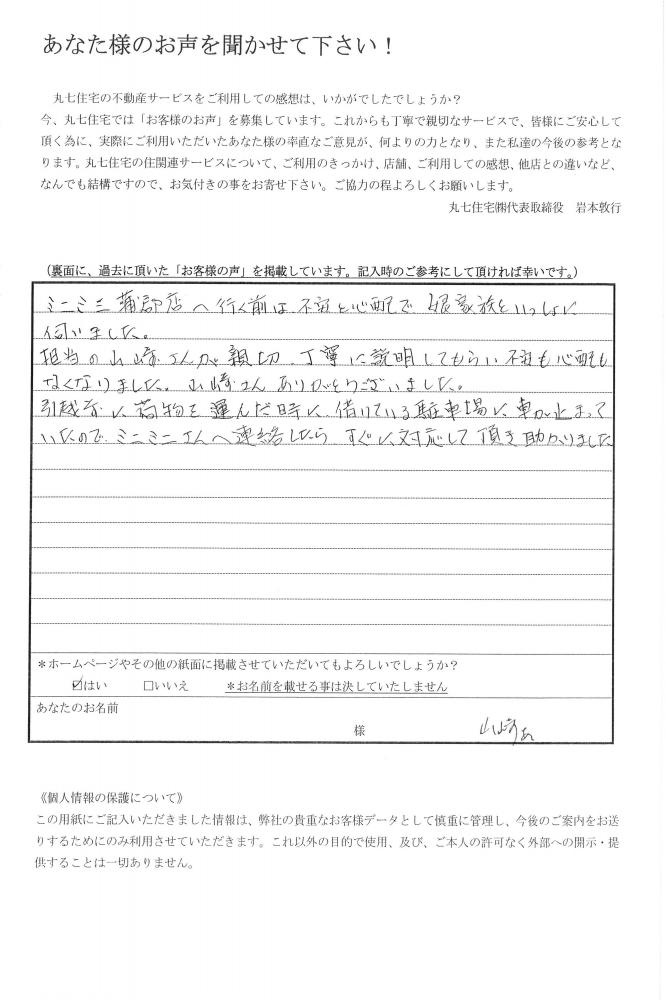 あなた様のお声を聞かせて下さい！
丸七住宅の不動産サービスをご利用しての感想は、いかがでしたでしょうか？
今、丸七住宅では「お客様のお声」を募集しています。これからも丁寧で親切なサービスで、皆様にご安心して
頂く為に、実際にご利用いただいたあなた様の率直なご意見が、何よりの力となり、また私達の今後の参考とな
ります。丸七住宅の住関連サービスについて、ご利用のきっかけ、店舗、ご利用しての感想、他店との違いなど、
なんでも結構ですので、お気付きの事をお寄せ下さい。ご協力の程よろしくお願いします。
丸七住宅㈱代表取締役　岩本敦行
（裏面に、過去に頂いた「お客様の声」を掲載しています。記入時のご参考にして頂ければ幸いです。）
ミニミニ蒲郡店へ行く前は、不安と心配で娘家族といっしょに
伺いました。
担当の山崎さんが親切、丁寧に説明してもらい不安も心配も
なくなりました。山崎さんありがとうございました。
引越前に荷物を運んだ時に、借りている駐車場に車が止まって
いたので、ミニミニさんへ連絡したら、すぐに対応して頂き助かりました
＊ホームページやその他の紙面に掲載させていただいてもよろしいでしょうか？
☑はい　□いいえ　＊お名前を載せる事は決していたしません
あなたのお名前
様　山崎
《個人情報の保護について》
この用紙にご記入いただきました情報は、弊社の貴重なお客様データとして慎重に管理し、今後のご案内をお送
りするためにのみ利用させていただきます。これ以外の目的で使用、及び、ご本人の許可なく外部への開示・提
供することは一切ありません。